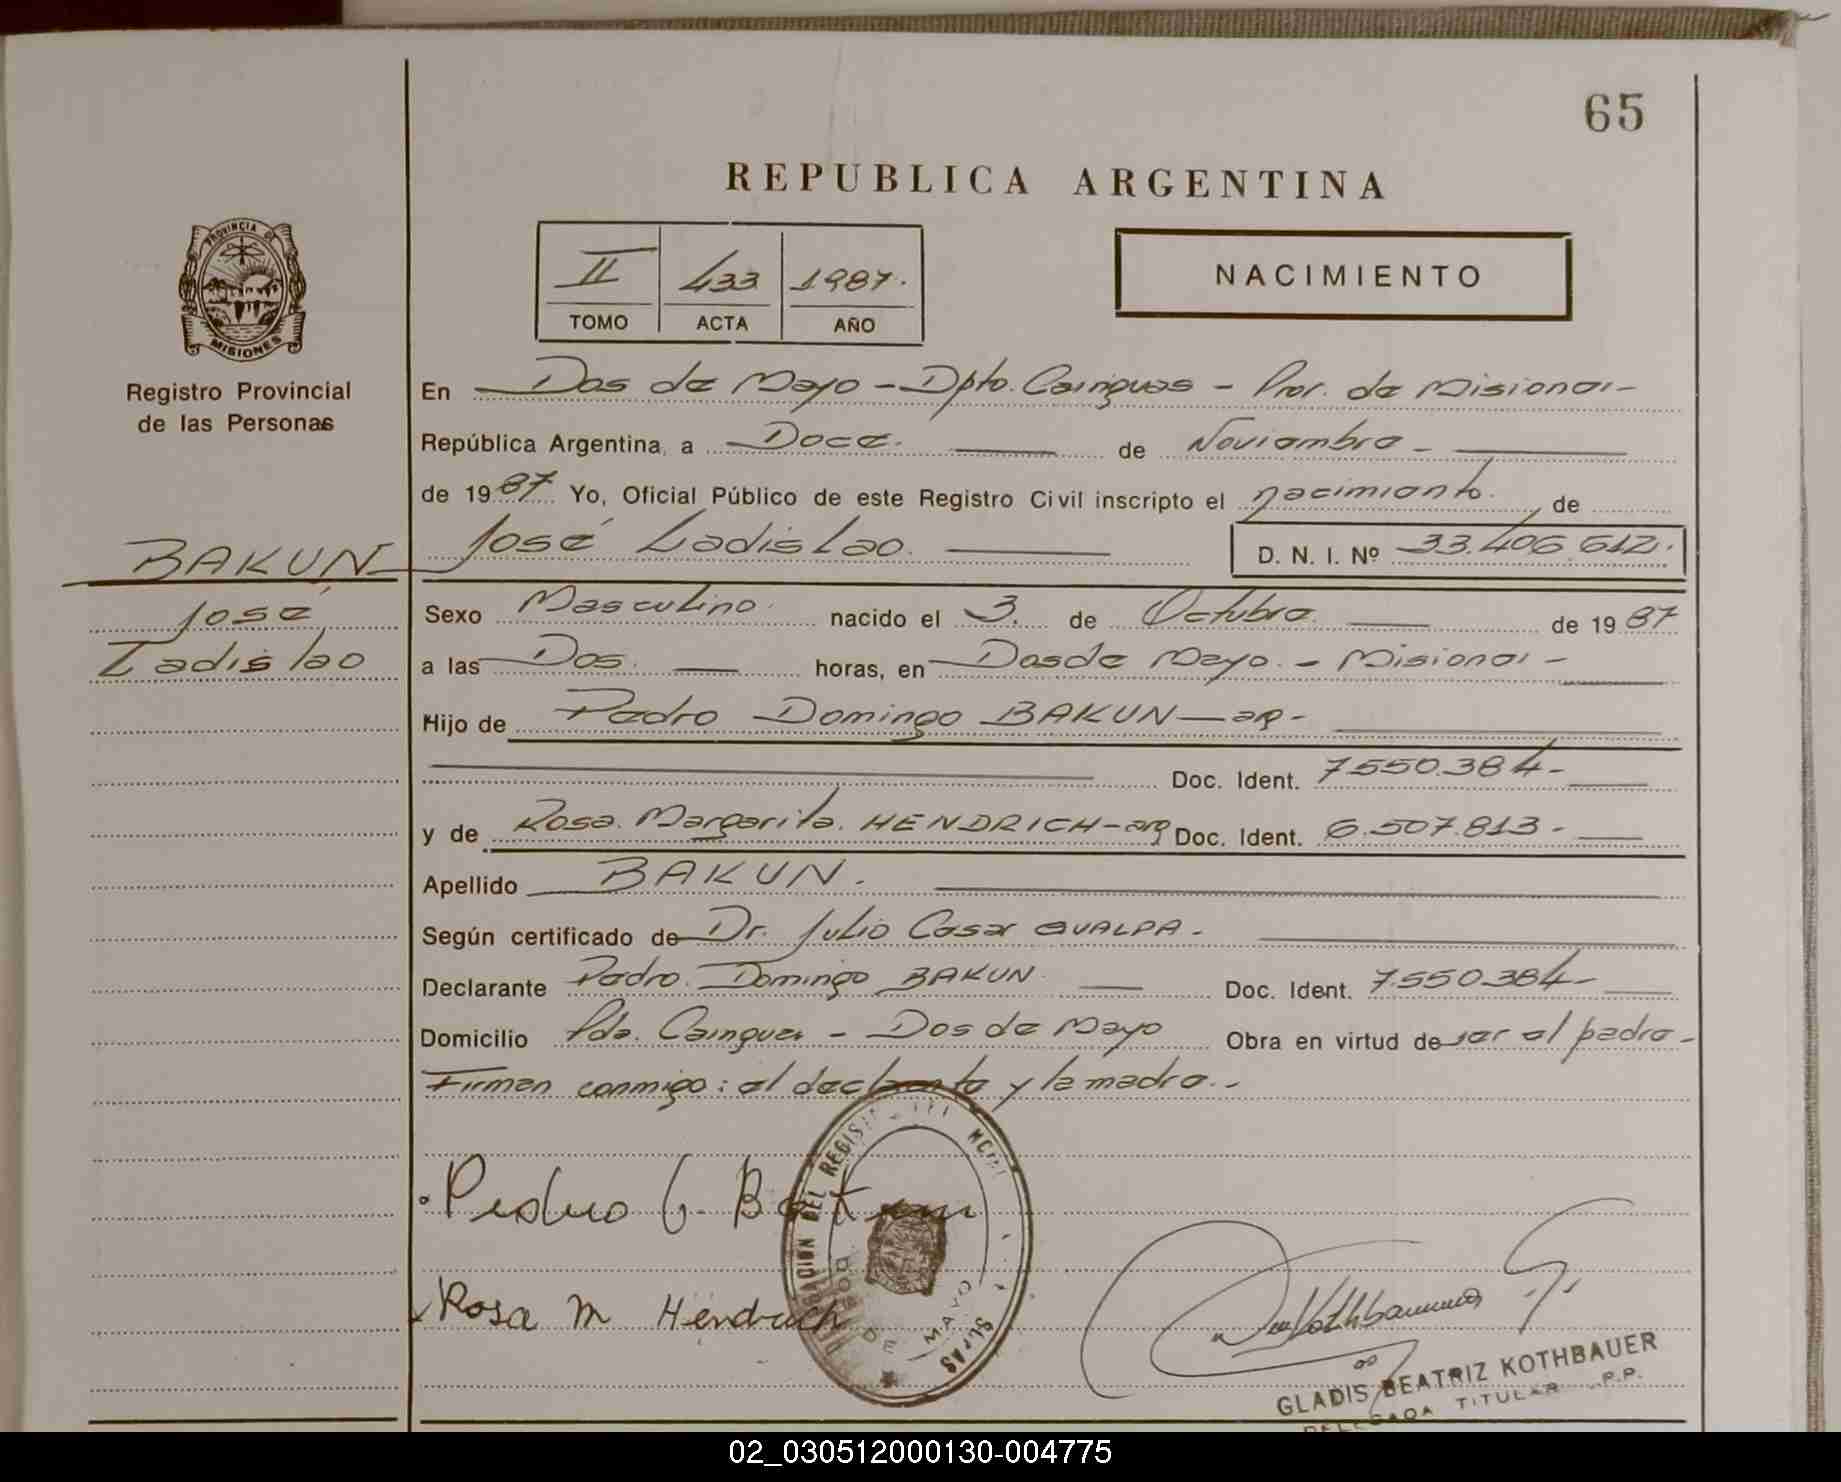 65
REPUBLICA ARGENTINA
PROVINCIA DE
MISIONES
Registro Provincial
de las Personas
II 433 1987.
TOMO ACTA AÑO
NACIMIENTO
En Dos de Mayo - Dpto. Cainguas - Prov. de Misiones -
República Argentina, a Doce. de Noviembre -
de 1987 Yo, Oficial Público de este Registro Civil inscripto el nacimiento. de
BAKUN José Ladislao. D. N. I. Nº 33.406.612.
José
Ladislao
Sexo Masculino. nacido el 3. de Octubre. de 1987
a las Dos. horas, en Dos de Mayo. - Misiones -
Hijo de Pedro Domingo BAKUN - arg -
Doc. Ident. 7.550.384 -
y de Rosa. Margarita. HENDRICH - arg Doc. Ident. 6.507.813 -
Apellido BAKUN.
Según certificado de Dr. Julio Cesar GUALPA -
Declarante Pedro. Domingo BAKUN Doc. Ident. 7.550.384 -
Domicilio Pda. Cainguas - Dos de Mayo Obra en virtud de ser el padre -
Firman conmigo: el declarante y la madre. -
Pedro G. Bakun
Rosa M Hendrich
DEL REGIST
DOS DE MAYO
Kothbauer
GLADIS BEATRIZ KOTHBAUER
DELEGADA TITULAR R.P.P.
02_030512000130-004775